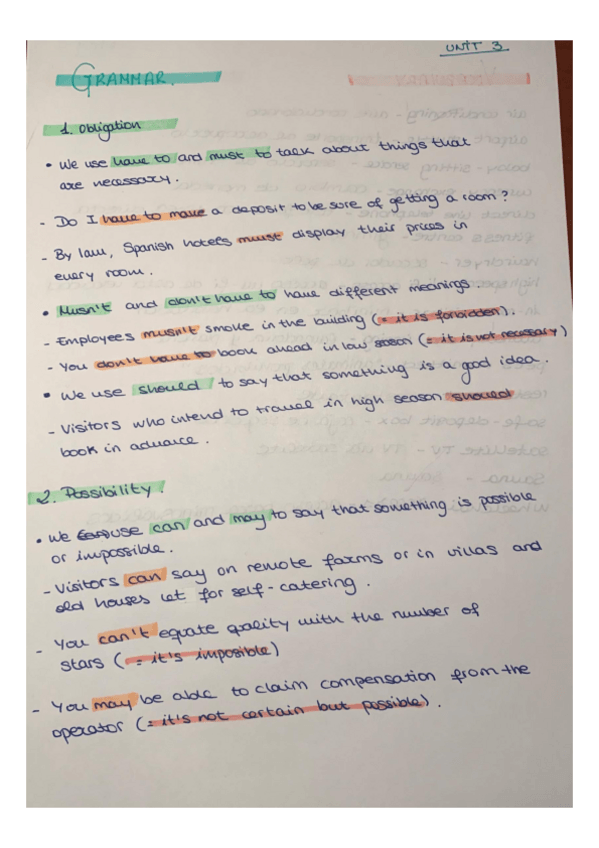 UNIT 3
GRAMMAR.
1. Obligation
• We use have to and must to talk about things that
are necessary.
- Do I have to make a deposit to be sure of getting a room?
- By law, Spanish hotels must display their prices in
every room.
• Musn't and don't have to have different meanings.
- Employees musn't smoke in the building (= it is forbidden).
- You don't have to book ahead in low season (= it is not necessary)
• We use should to say that something is a good idea.
- Visitors who intend to travel in high season should
book in advance.
2. Possibility.
• We use can and may to say that something is possible
or impossible.
- Visitors can say on remote farms or in villas and
old houses let for self-catering.
- You can't equate quality with the number of
stars (= it's imposible)
- You may be able to claim compensation from the
operator (= it's not certain but possible).